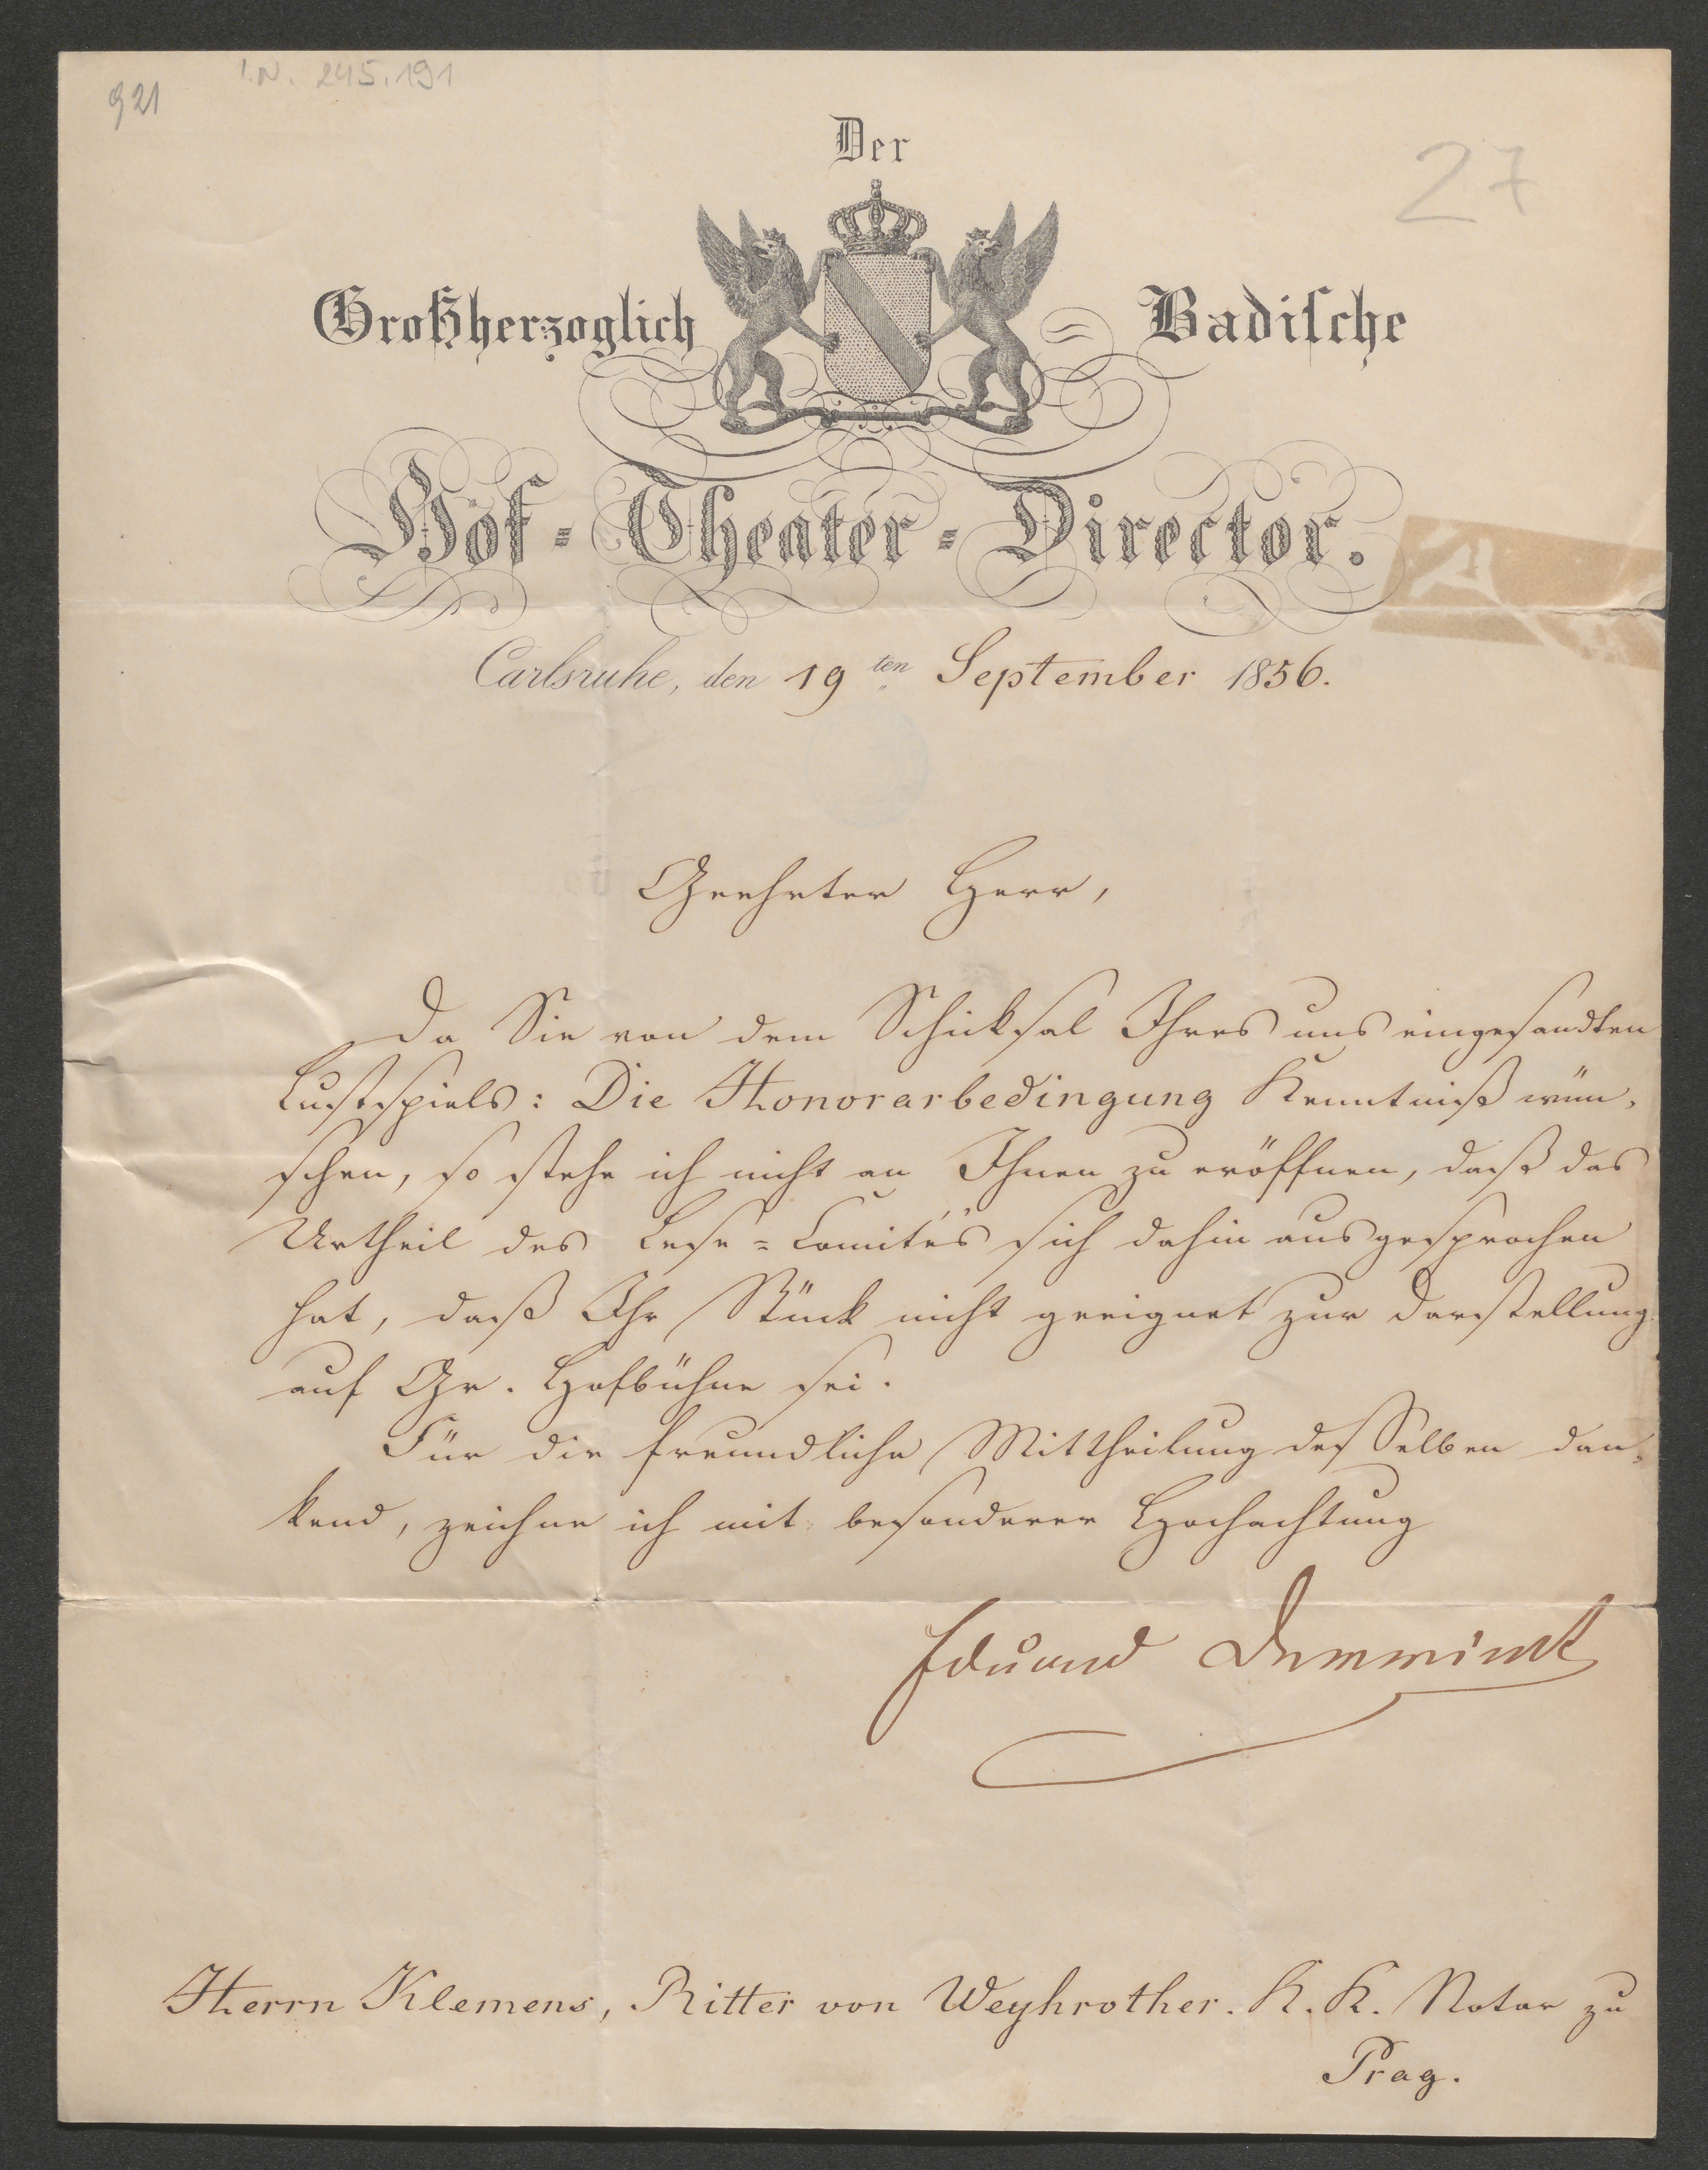 I.N. 245.191
921
27
Der
Großherzoglich = Badische
Hof-Theater-Director.
Carlsruhe, den 19ten September 1856.
Geehrter Herr,
Da Sie von dem Schicksal Ihres uns eingesandten
Lustspiels: Die Honorarbedingung Kenntniß wün-
schen, so stehe ich nicht an Ihnen zu eröffnen, daß das
Urtheil des Lese-Comités sich dahin ausgesprochen
hat, daß Ihr Stück nicht geeignet zur Darstellung
auf Gr. Hofbühne sei.
Für die freundliche Mittheilung desselben dan-
kend, zeichne ich mit besonderer Hochachtung
Eduard Devrient
Herrn Klemens, Ritter von Weyhrother. K. K. Notar zu
Prag.